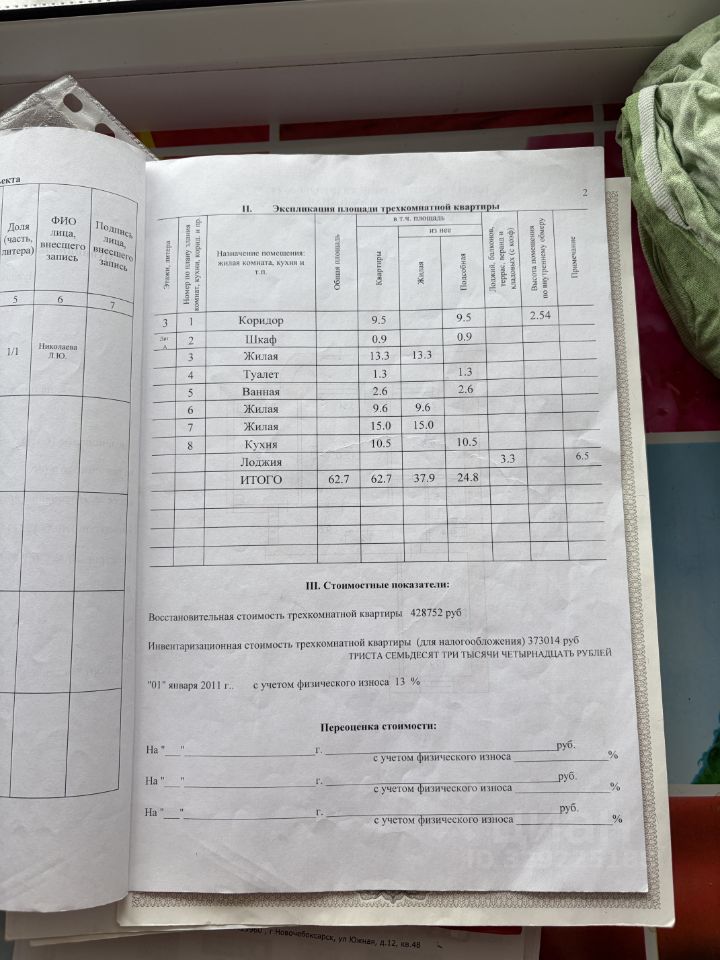 екта
Доля (часть, литера)
ФИО лица, внесшего запись
Подпись лица, внесшего запись
5 6 7
1/1 Николаева Л.Ю.
2
II. Экспликация площади трехкомнатной квартиры
Этажи, литера
Номер по плану здания комнат, кухни, корид. и пр.
Назначение помещения: жилая комната, кухня и т.п.
Общая площадь
в т.ч. площадь
Квартиры
из нее
Жилая
Подсобная
Лоджий, балконов, террас, веранд и кладовых (с коэф)
Высота помещения по внутреннему обмеру
Примечание
3 1 Коридор 9.5 9.5 2.54
Лит А 2 Шкаф 0.9 0.9
3 Жилая 13.3 13.3
4 Туалет 1.3 1.3
5 Ванная 2.6 2.6
6 Жилая 9.6 9.6
7 Жилая 15.0 15.0
8 Кухня 10.5 10.5
Лоджия 3.3 6.5
ИТОГО 62.7 62.7 37.9 24.8
III. Стоимостные показатели:
Восстановительная стоимость трехкомнатной квартиры 428752 руб
Инвентаризационная стоимость трехкомнатной квартиры (для налогообложения) 373014 руб
ТРИСТА СЕМЬДЕСЯТ ТРИ ТЫСЯЧИ ЧЕТЫРНАДЦАТЬ РУБЛЕЙ
"01" января 2011 г.. с учетом физического износа 13 %
Переоценка стоимости:
На "___"__________ г. __________руб.
с учетом физического износа __________%
На "___"__________ г. __________руб.
с учетом физического износа __________%
На "___"__________ г. __________руб.
с учетом физического износа __________%
г.Новочебоксарск, ул Южная, д.12, кв.48